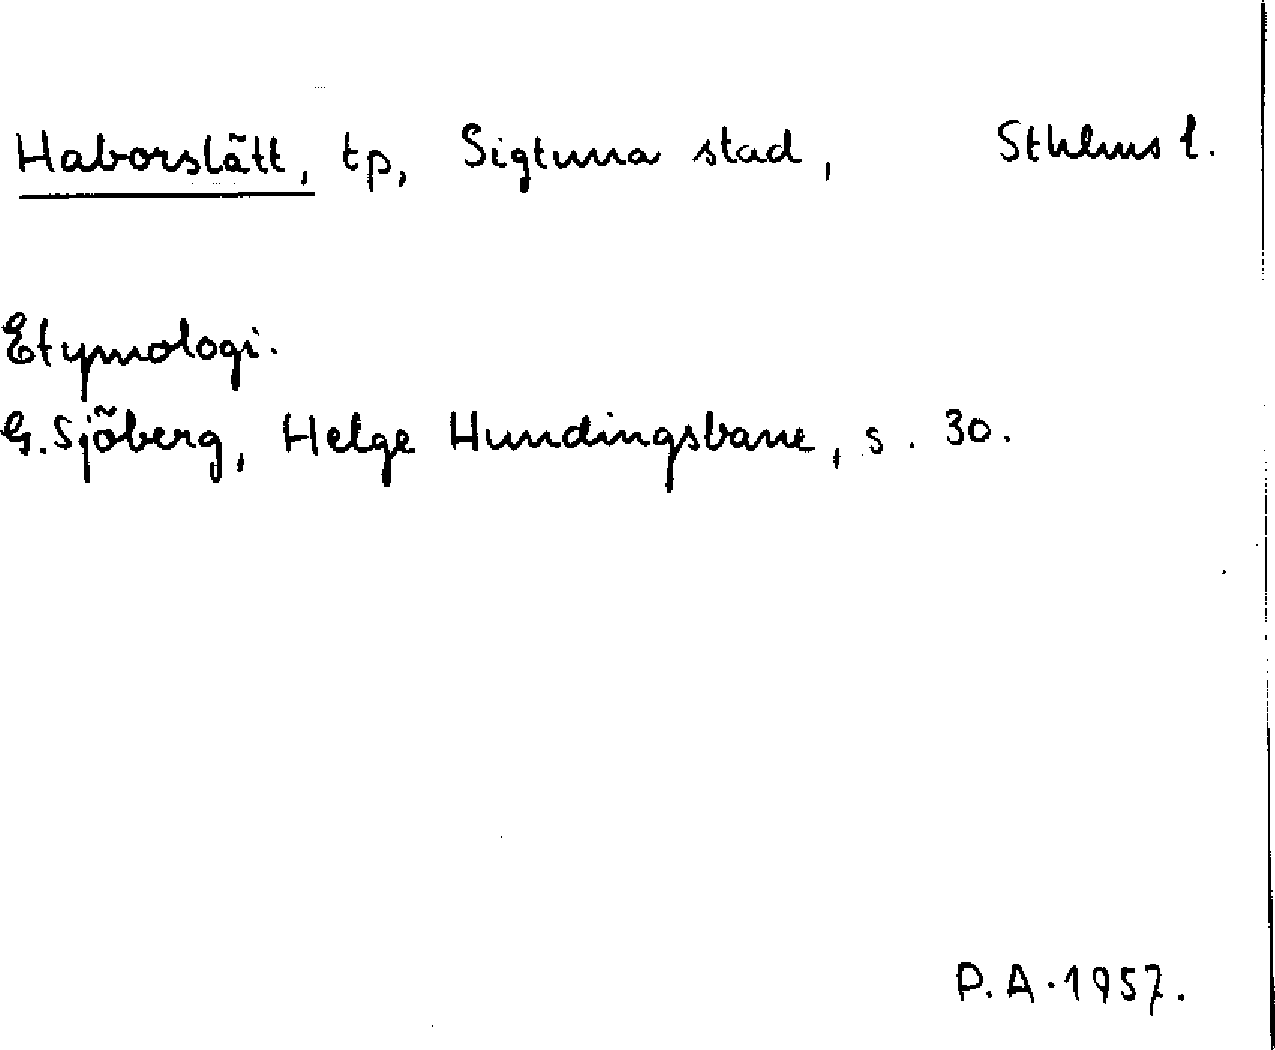 Haborslätt, tp, Sigtuna stad, Sthlms l.
Etymologi.
G. Sjöberg, Helge Hundingsbane, s. 30.
P.A. 1957.